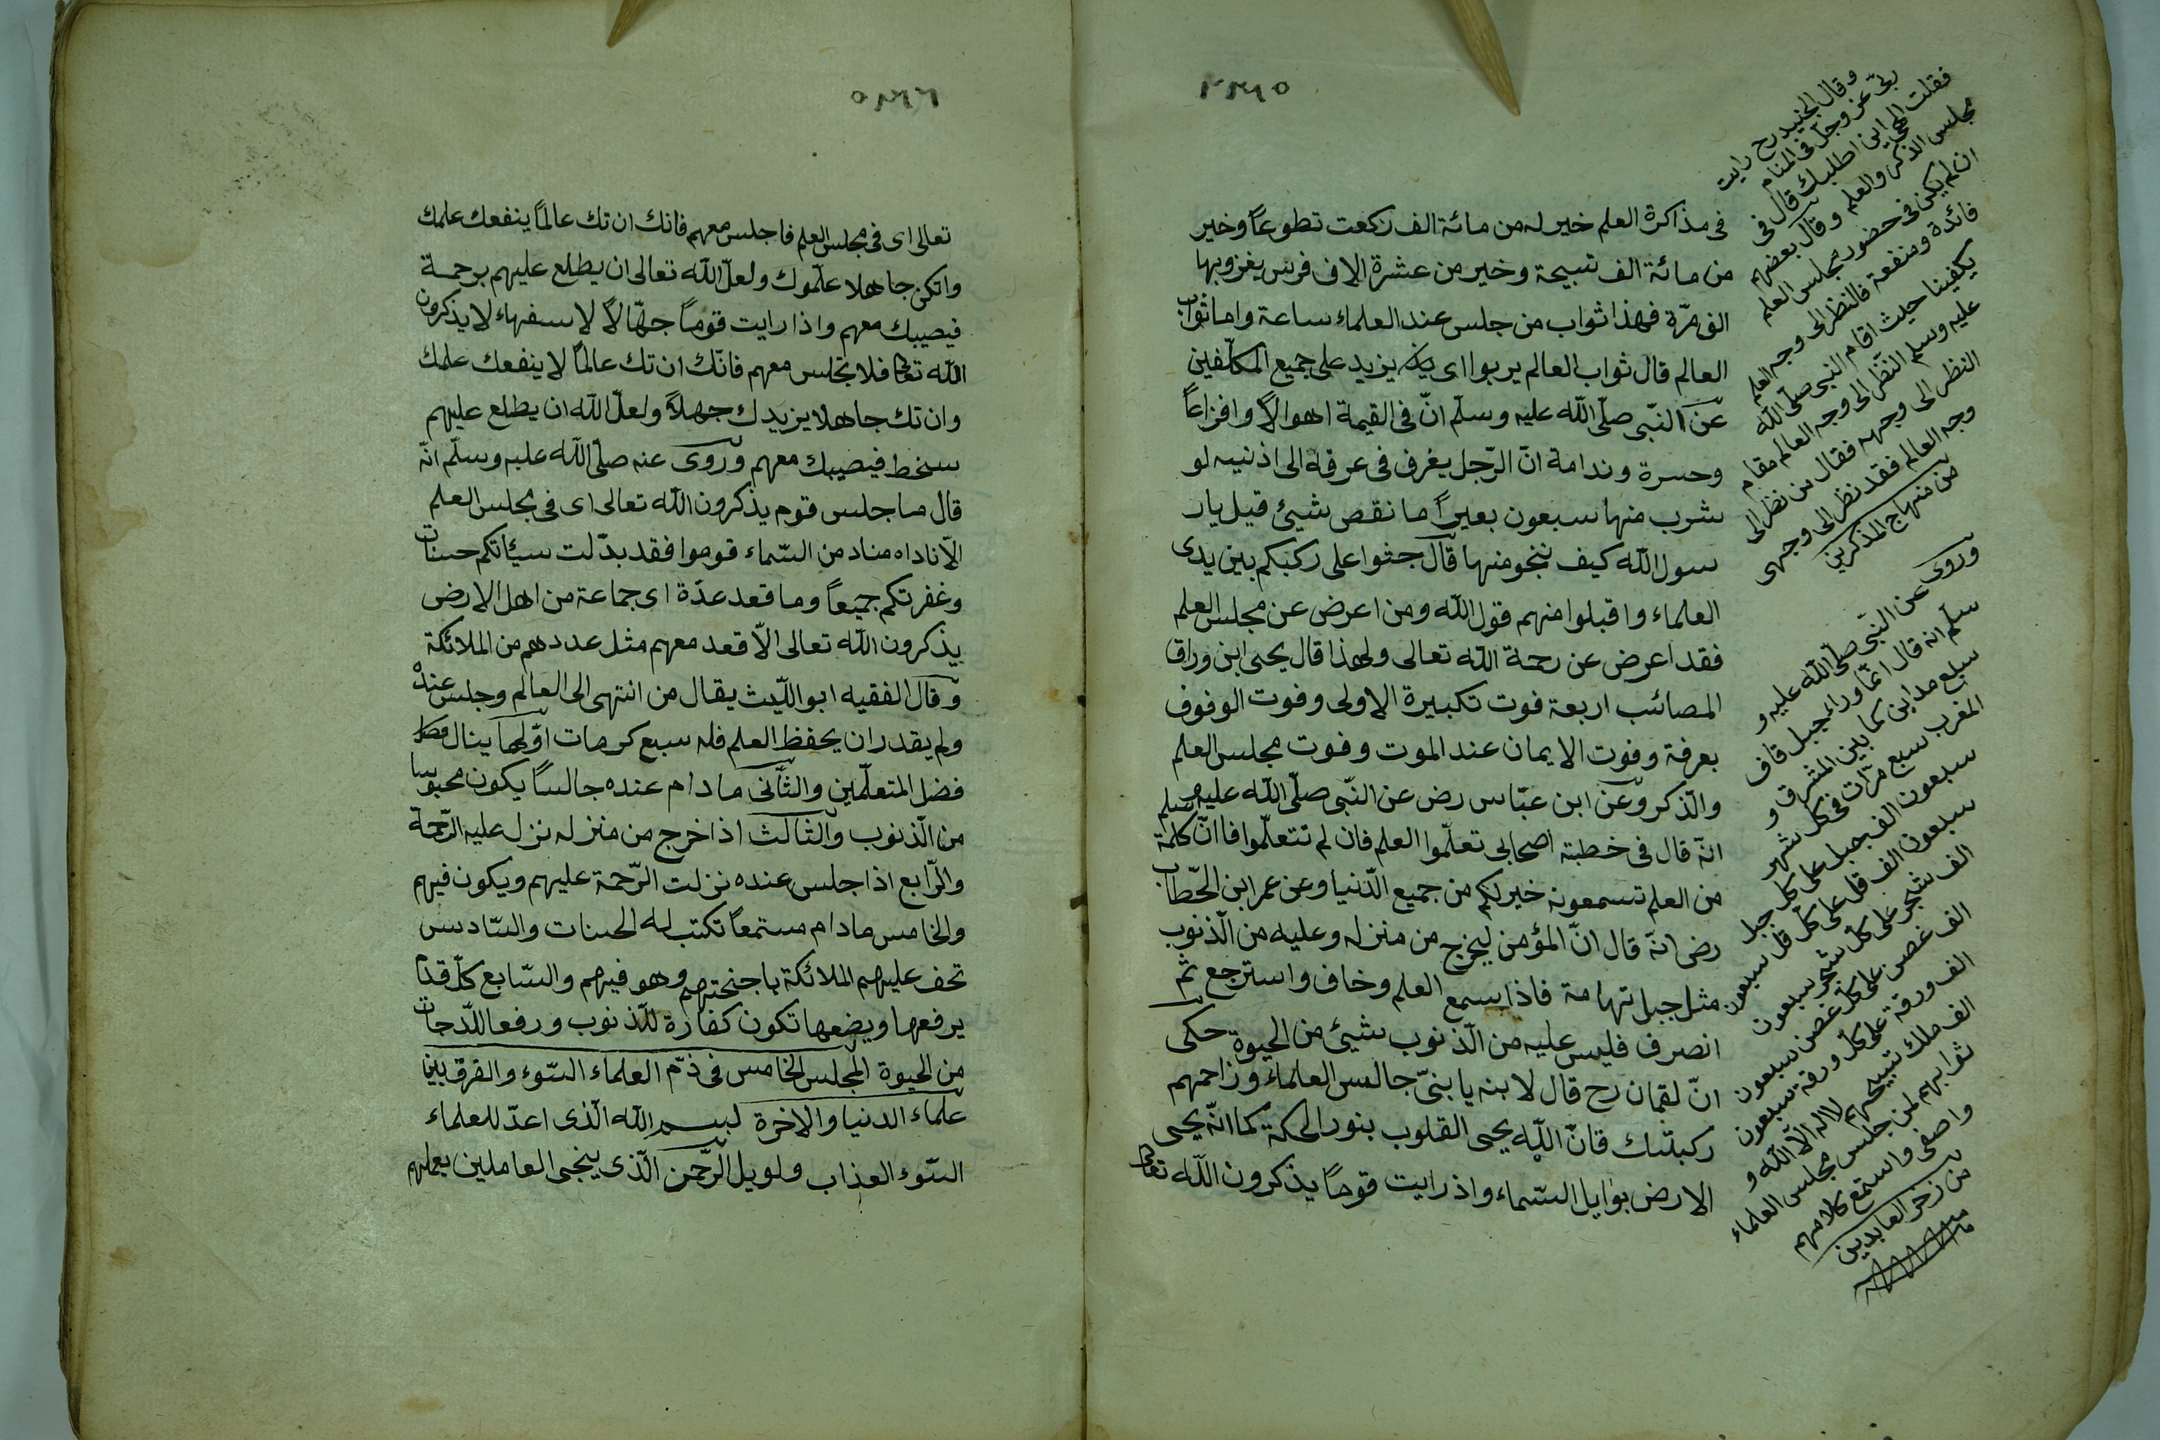 فى مذاكرة العلم خير له من مائة الف ركعت تطوعاً وخير
من مائة الف تسبيحة وخير من عشرة الاف فرس يغزو بها
الف مرّة فهذا ثواب من جلس عند العلماء ساعة واما ثواب
العالم قال ثواب العالم يربوا اى يزيد على جميع المكلّفين
عن النّبى صلّى اللّه عليه وسلّم انّ فى القيمة اهوالاً وافزاعاً
وحسرة وندامة انّ الرّجل يغرق فى عرقه الى اذنيه لو
شرب منها سبعون بعيراً ما نقص شيئ قيل يار
سول اللّه كيف ننجو منها قال جثوا على ركبكم بين يدى
العلماء واقبلوا منهم قول اللّه ومن اعرض عن مجلس العلم
فقد اعرض عن رحمة اللّه تعالى ولهذا قال يحيى ابن وراق
المصائب اربعة فوت تكبيرة الاولى وفوت الوقوف
بعرفة وفوت الايمان عند الموت وفوت مجلس العلم
والذكر وعن ابن عبّاس رض عن النّبى صلّى اللّه عليه وسلم
انّه قال فى خطبة اصحابى تعلّموا العلم فان لم تتعلّموا فانّ كلمة
من العلم تسمعونه خير لكم من جميع الدّنيا وعن عمر ابن الخطّاب
رضى انّه قال انّ المؤمن ليخرج من منزله وعليه من الذّنوب
مثل جبل تهامة فاذا سمع العلم وخاف واسترجع ثم
انصرف فليس عليه من الذّنوب شيئ من الحيوة حكى
انّ لقمان رح قال لابنه يا بنىّ جالس العلماء وزاحمهم
ركبتك فانّ اللّه يحيى القلوب بنور الحكمة كما انّه يحيى
الارض بوابل السّماء واذ رايت قوماً يذكرون اللّه تعالى
وقال الجنيد رح رايت
ربّى عزّ وجلّ فى المنام
فقلت الهى اين اطلبك قال فى
مجلس الذكر والعلم وقال بعضهم
ان لم يكن فى حضور مجلس العلم
فائدة ومنفعة فالنظر الى وجه العلم
يكفينا حيث اقام النبى صلّى اللّه
عليه وسلم النّظر الى وجه العالم مقام
النظر الى وجهه فقال من نظر الى
وجه العالم فقد نظر الى وجهى
من منهاج المذكرين
وروى عن النّبى صلّى اللّه عليه و
سلّم انه قال انّما وراء جبل قاف
سبع مداين كما بين المشرق و
المغرب سبع مرّات فى كل شهر
سبعون الف جبل على كل جبل
سبعون الف قل على كلّ قل سبعون
الف شجر على كلّ شجر سبعون
الف غصن على كلّ غصن سبعون
الف ورقة على كلّ ورقة سبعون
الف ملك تسبيحهم لا اله الّا اللّه و
ثوابهم لمن جلس مجلس العلماء
واصغى واستمع كلامهم
من زخر العابدين
تعالى اى فى مجلس العلم فاجلس معهم فانك ان تك عالماً ينفعك علمك
وان تكن جاهلا علّموك ولعلّ اللّه تعالى ان يطلع عليهم برحمة
فيصيبك معهم واذا رايت قوماً جهّالاً لا سفهاء لا يذكرون
اللّه تعالى فلا تجلس معهم فانّك ان تك عالماً لا ينفعك علمك
وان تك جاهلا يزيدك جهلاً ولعلّ اللّه ان يطلع عليهم
سخط فيصيبك معهم وروى عنه صلّى اللّه عليه وسلّم انّه
قال ما جلس قوم يذكرون اللّه تعالى اى فى مجلس العلم
الّا ناداه مناد من السّماء قوموا فقد بدّلت سيّئاتكم حسنات
وغفرتكم جميعاً وما قعد عدّة اى جماعة من اهل الارض
يذكرون اللّه تعالى الّا قعد معهم مثل عددهم من الملائكة
وقال الفقيه ابو اللّيث يقال من انتهى الى العالم وجلس عنده
ولم يقدر ان يحفظ العلم فله سبع كرمات اوّلها ينال
فضل المتعلّمين والثّانى ما دام عنده جالسا يكون محبوسا
من الذّنوب والثالث اذا خرج من منزله نزله عليه الرّحمة
والرّابع اذا جلس عنده نزلت الرّحمة عليهم ويكون فيهم
والخامس ما دام مستمعاً تكتب له الحسنات والسّادس
تحف عليهم الملائكة باجنحتهم وهو فيهم والسّابع كلّ قدم
يرفعها ويضعها تكون كفارة للذّنوب ورفعا للدّرجات
من الحيوة المجلس الخامس فى ذمّ العلماء السّوء والفرق بين
علماء الدنيا والاخرة بسم اللّه الّذى اعدّ للعلماء
السّوء العذاب ولويل الرّحمن الّذى ينجى العاملين بعلمهم